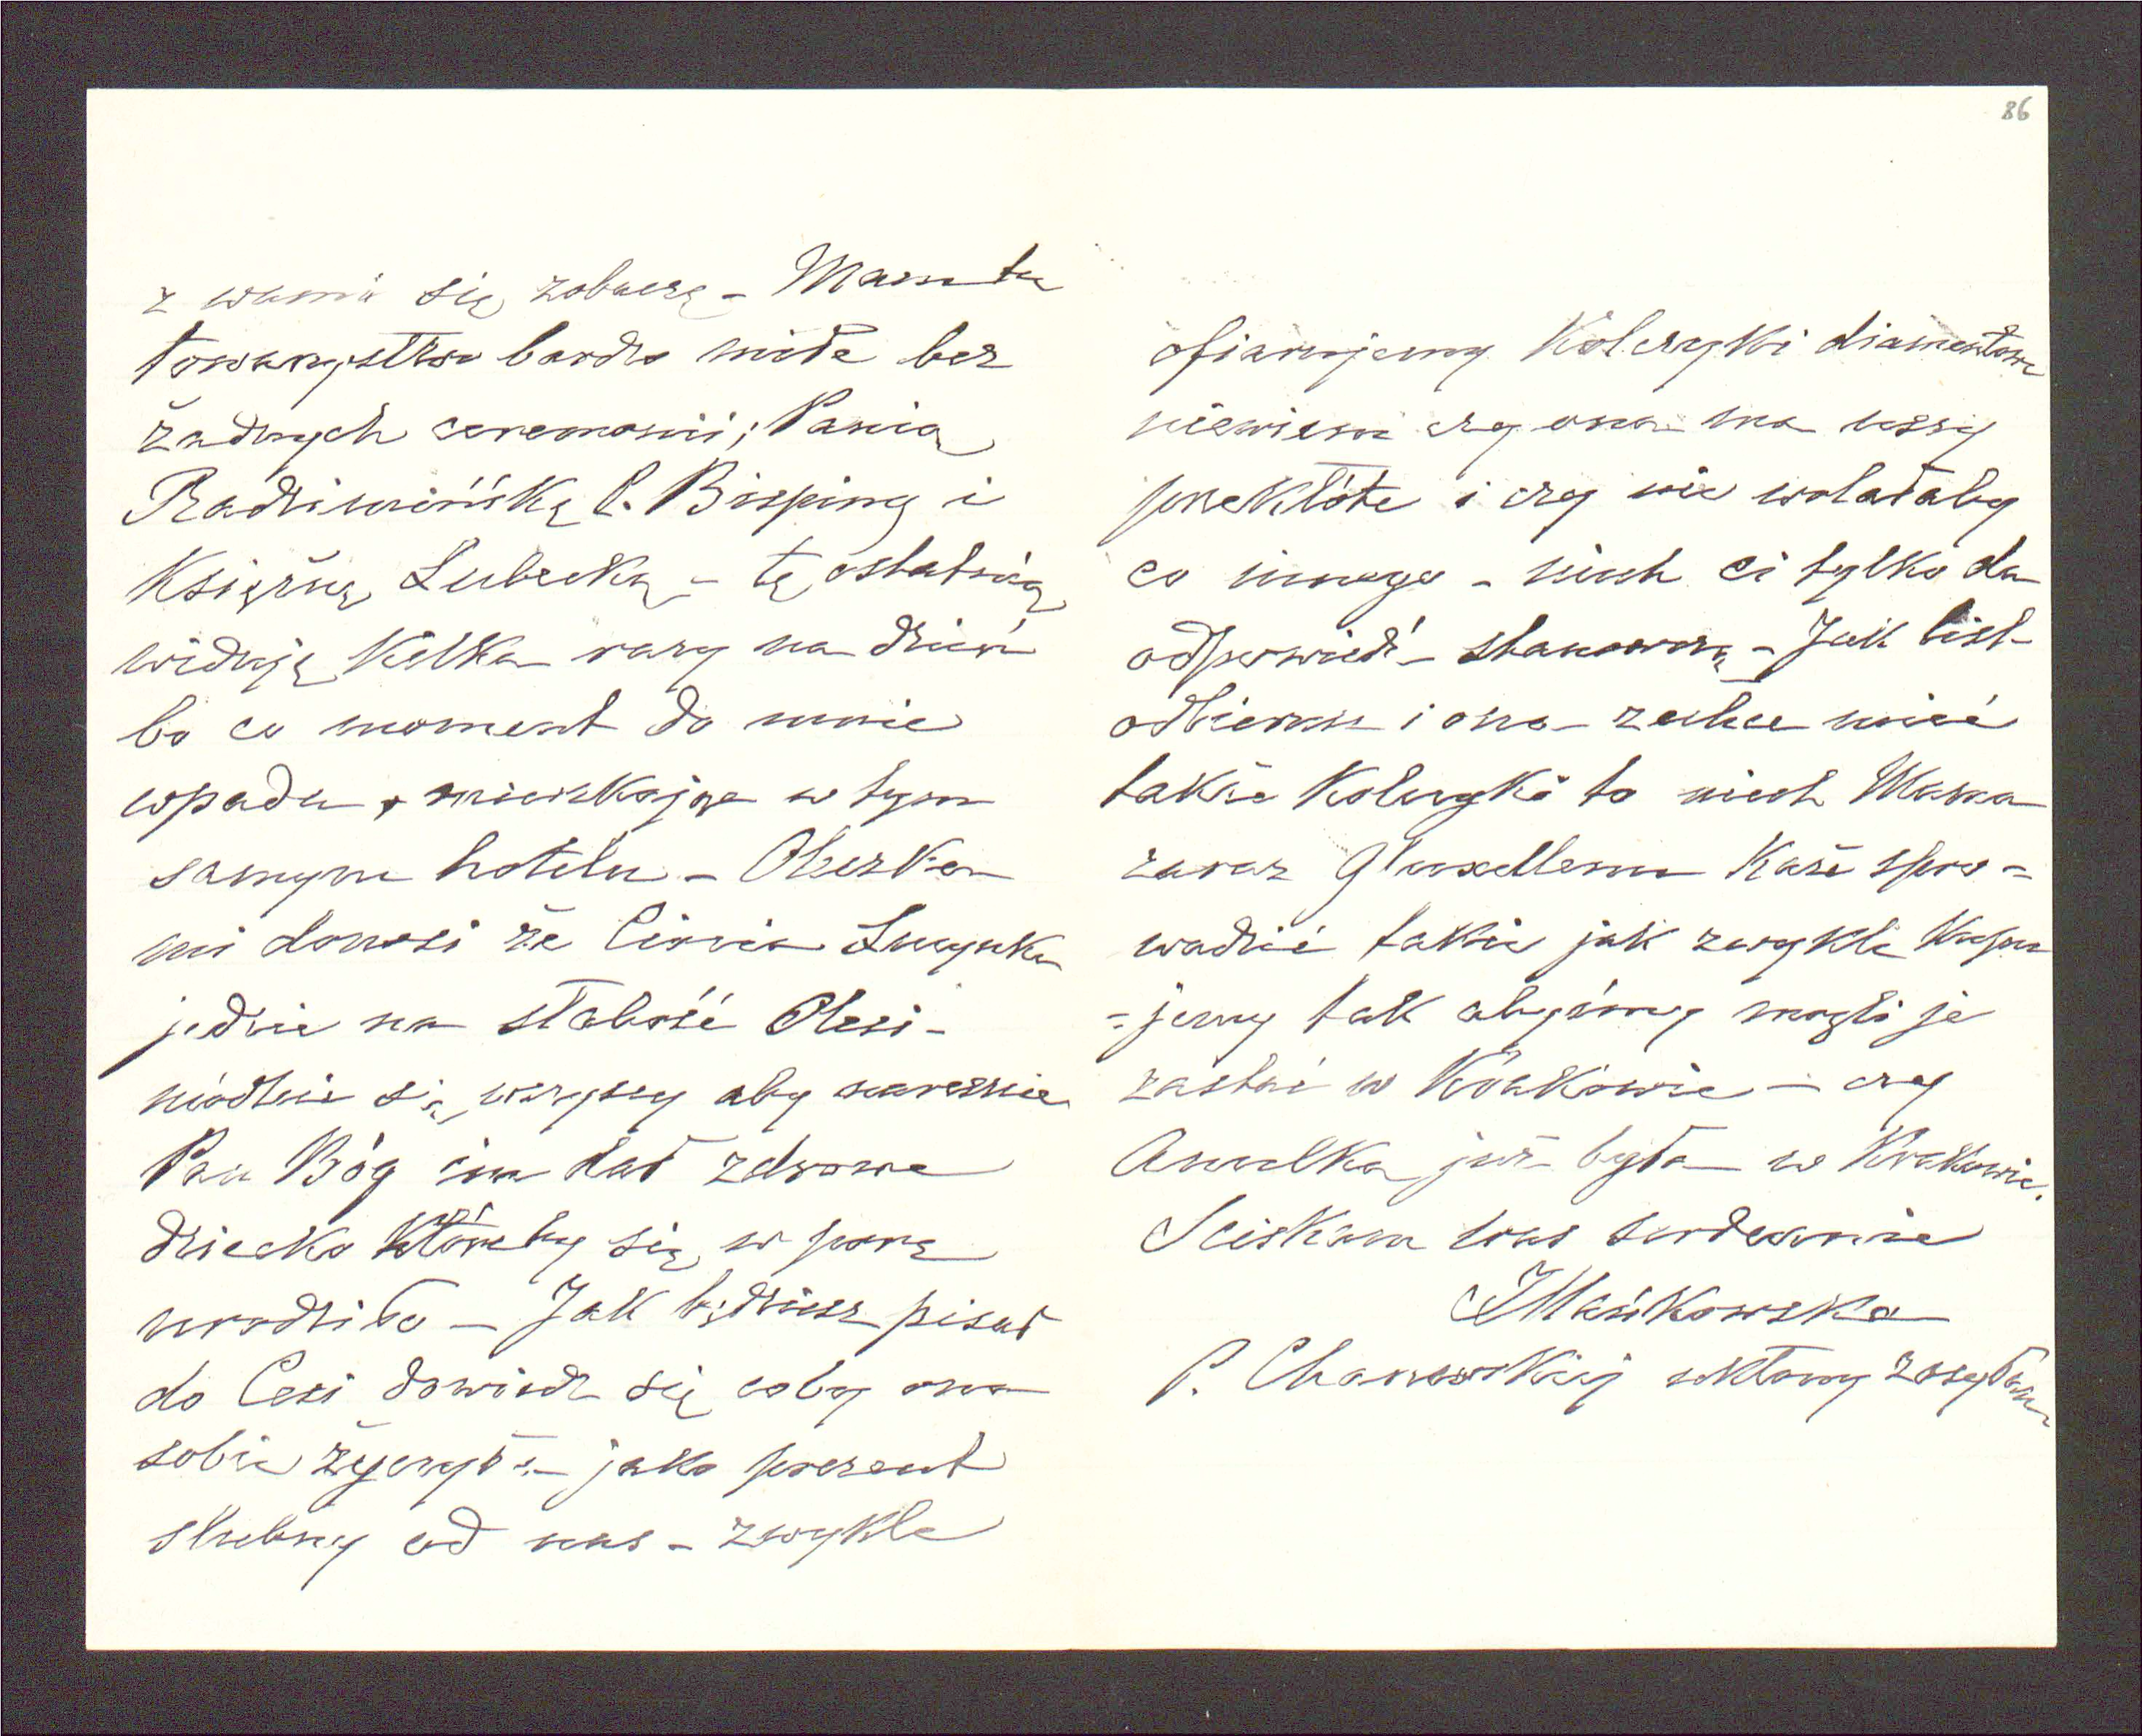 86
z wami się zobaczę - Mam tu
towarzystwo bardzo miłe bez
żadnych ceremonii; Panią
Radziwińską P. Bisping i
Księżnę Lubecką - tę ostatnią
widuję kilka razy na dzień
bo co moment do mnie
wpada, mieszkając w tym
samym hotelu - Oleszka
mi donosi że Ciocia Lucynka
jedzie na słabość Olesi -
módlcie się wszyscy aby nareszcie
Pan Bóg im dał zdrowe
dziecko któreby się w porę
urodziło - Jak będziesz pisać
do Cesi dowiedz się coby ona
sobie życzyła jako prezent
ślubny od nas - zwykle
ofiarujemy Kolczyki diamentowe
niewiem czy ona ma uszy
przekłóte i czy nie wolałaby
co innego - niech ci tylko da
odpowiedź stanowczą - Jak list
odbierzesz i ona zechce mieć
także Kolczyki to niech Mama
zaraz Glixellemu każe spro=
wadzić takie jak zwykle kupu
=jemy tak abyśmy mogli je
zastać w Krakowie - czy
Anulka już była w Krakowie.
Sciskam was serdecznie
JMańkowska
P. Chanowskiej ukłony zasyłam